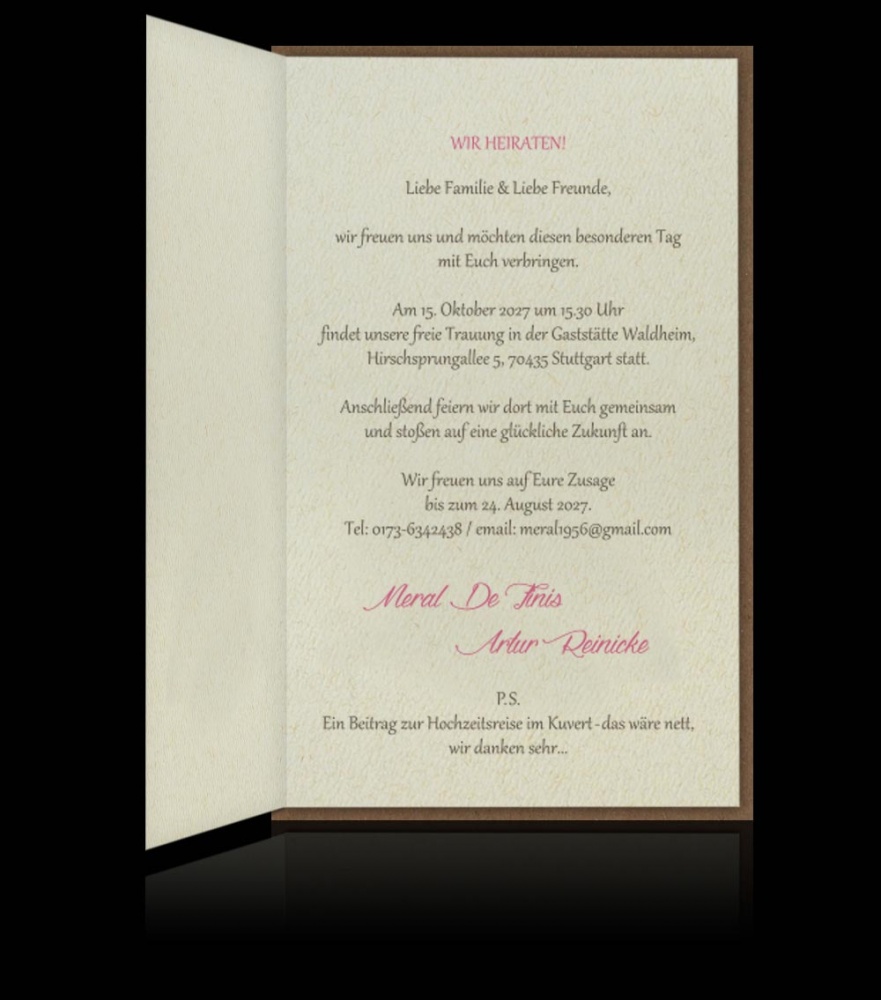 WIR HEIRATEN!
Liebe Familie & Liebe Freunde,
wir freuen uns und möchten diesen besonderen Tag
mit Euch verbringen.
Am 15. Oktober 2027 um 15.30 Uhr
findet unsere freie Trauung in der Gaststätte Waldheim,
Hirschsprungallee 5, 70435 Stuttgart statt.
Anschließend feiern wir dort mit Euch gemeinsam
und stoßen auf eine glückliche Zukunft an.
Wir freuen uns auf Eure Zusage
bis zum 24. August 2027.
Tel: 0173-6342438 / email: meral1956@gmail.com
Meral De Finis
Artur Reinicke
P.S.
Ein Beitrag zur Hochzeitsreise im Kuvert - das wäre nett,
wir danken sehr...